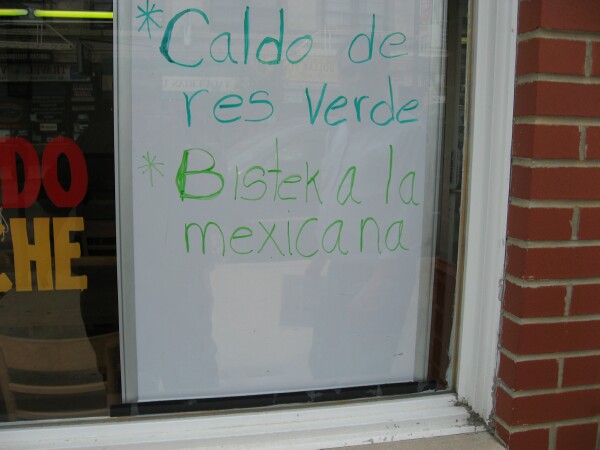 *Caldo de
res Verde
*Bistek a la
mexicana
DO
HE